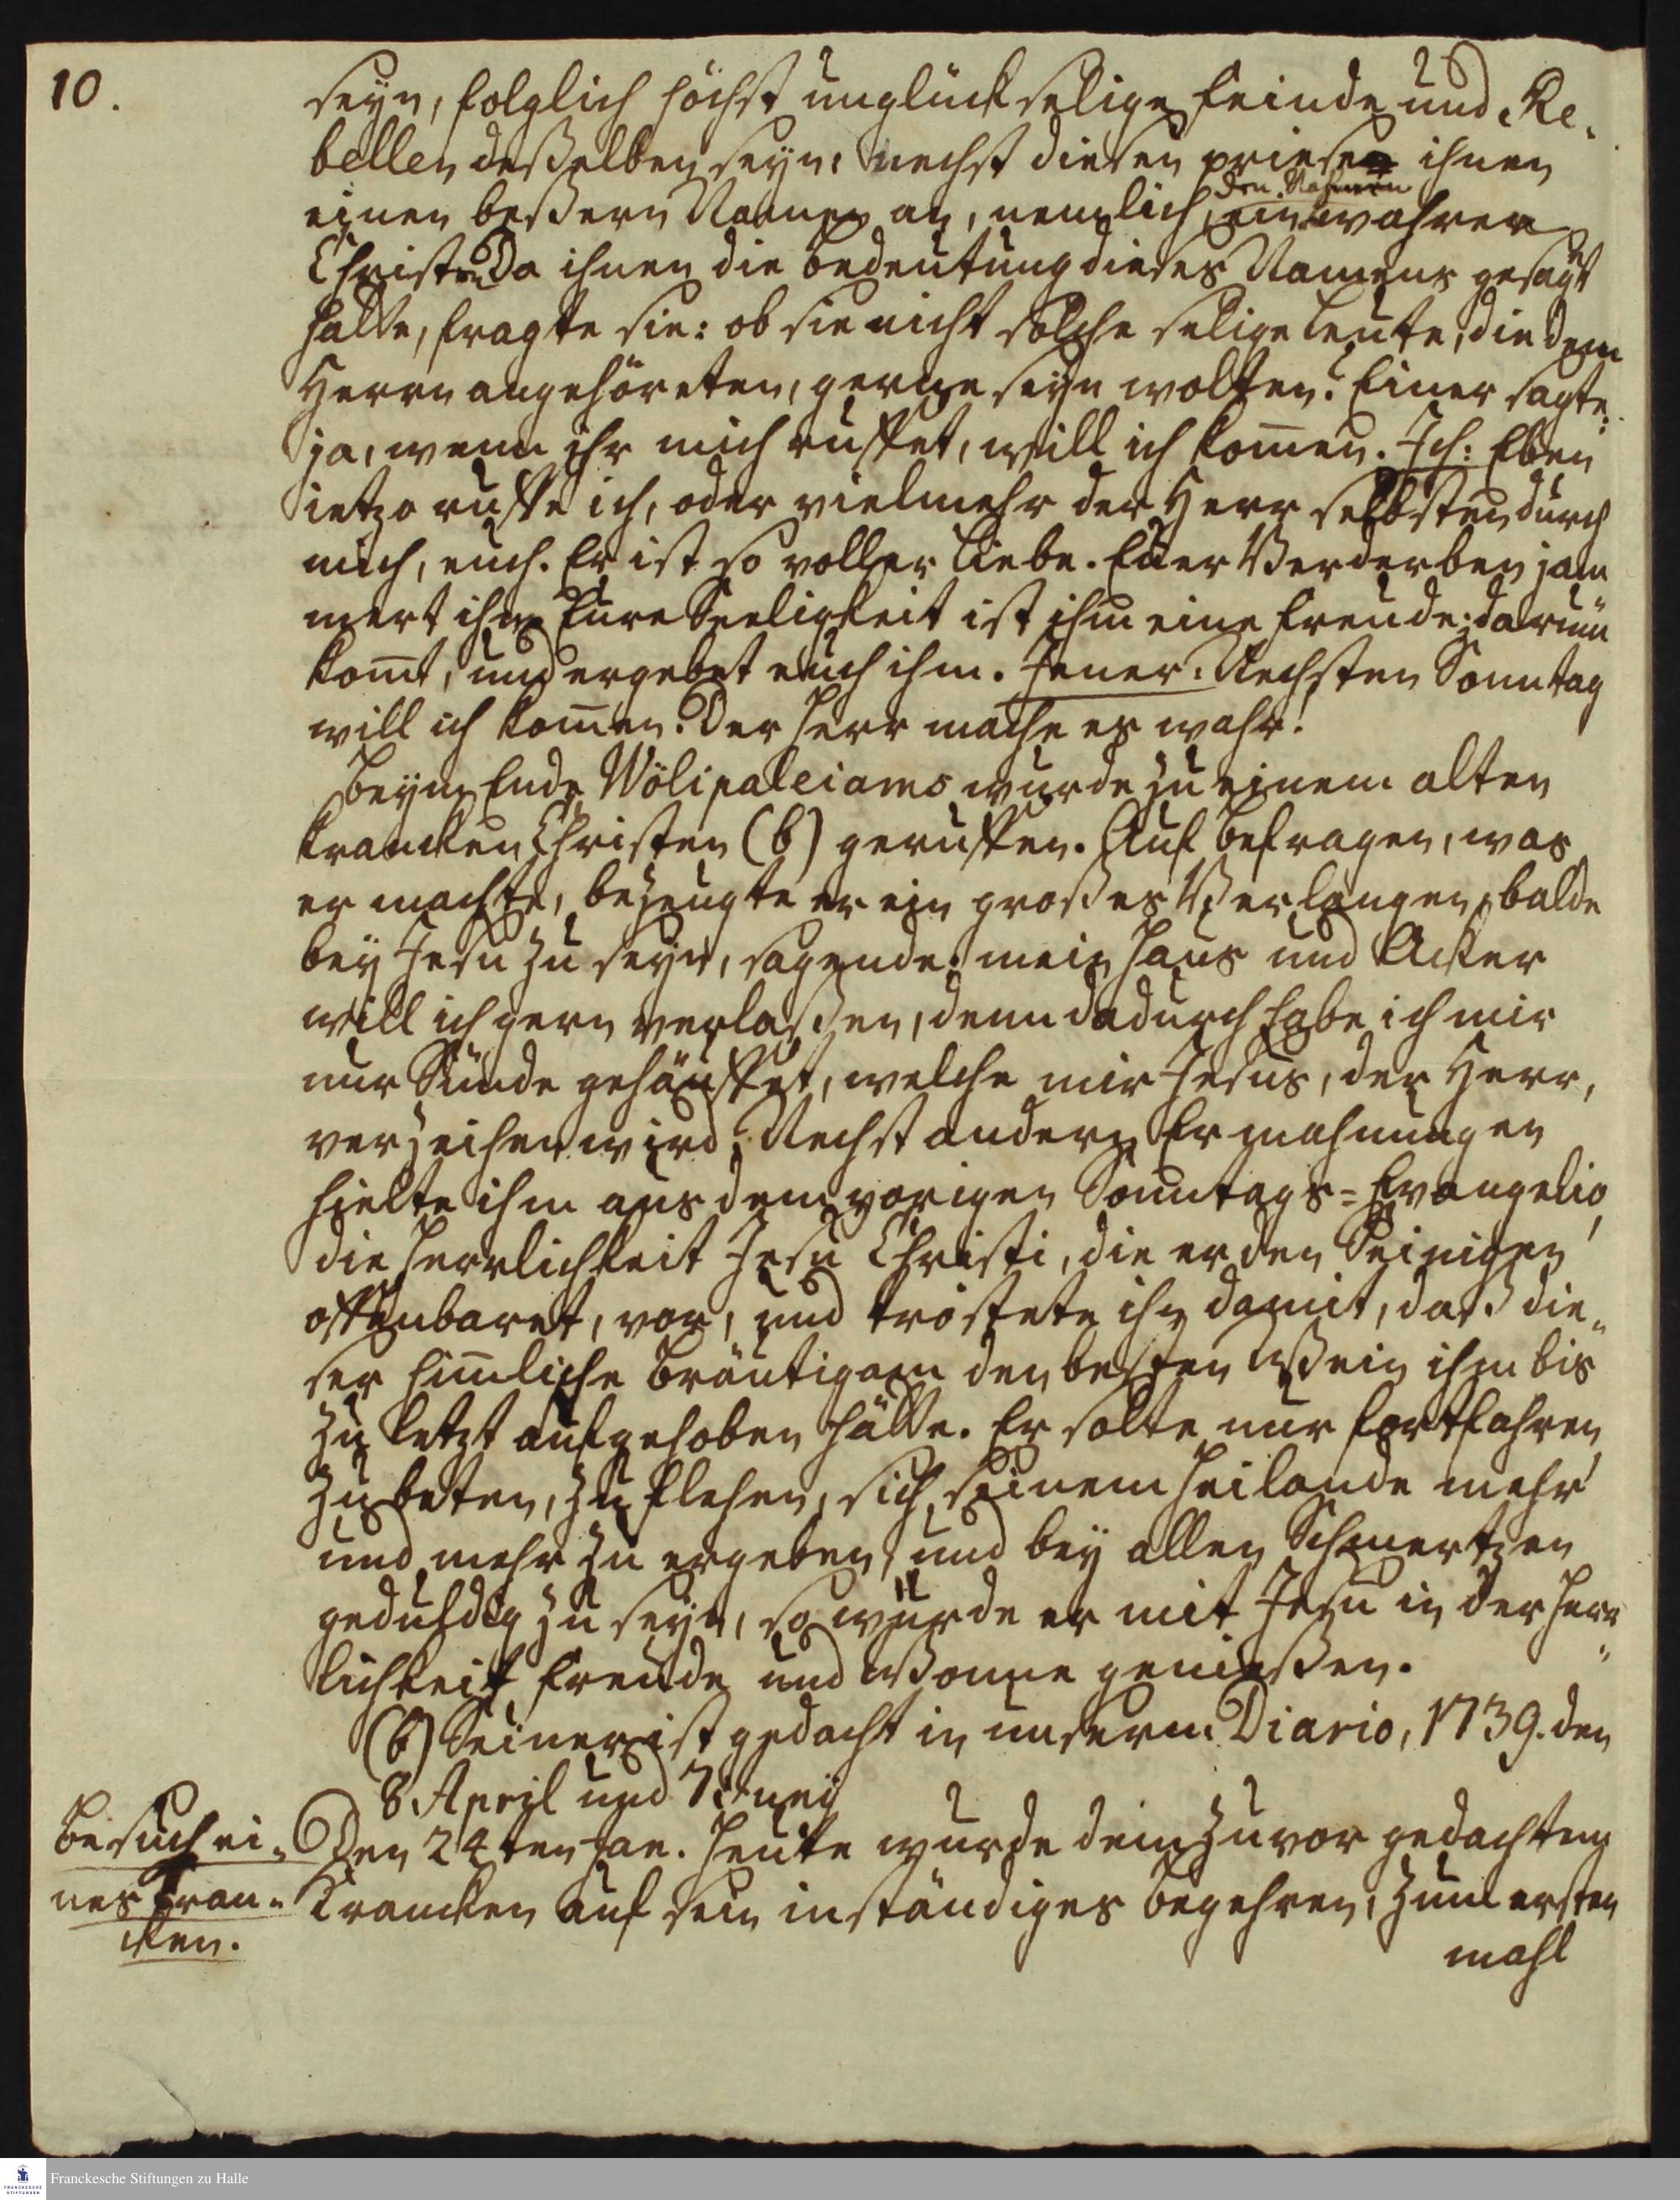 10.
seyn, folglich höchst unglückselige Feinde und Re-
bellen deßelben seyn: Nechst diesen priese ihnen
den Nahmen
einen beßern Namen an, nemlich, ein wahrer
Christ. Da ihnen die Bedeutung dieses Namens gesagt
hatte, fragte sie: ob sie nicht solche selige Leute, die dem
Herrn angehöreten, gerne seyn wolten? Einer sagte:
ja, wenn ihr mich ruffet, will ich kom̄en. Ich: Eben
ietzo ruffe ich, oder vielmehr der Herr selbsten durch
mich, euch. Er ist so voller Liebe. Euer Verderben jam
mert ihn, Eure Seeligkeit ist ihm eine Freude; darum̄
kom̄t, und ergebet euch ihm. Jener: Nechsten Sonntag
will ich kom̄en. Der Herr mache es wahr!
Beym Ende Wölipaleiams wurde zu einem alten
krancken Christen (b) geruffen. Auf Befragen, was
er machte, bezeugte er ein großes Verlangen, balde
bey Jesu zu seyn, sagende: mein Haus und Acker
will ich gern verlaßen, denn dadurch habe ich mir
nur Sünde gehäuffet, welche mir Jesus, der Herr,
verzeihen wird. Nechst andern Ermahnungen
hielte ihm aus dem vorigen Sonntags-Evangelio
die Herrlichkeit Jesu Christi, die er den Seinigen
offenbaret, vor, und tröstete ihn damit, daß die-
ser him̄lische Bräutigam den besten Wein ihm bis
zu letzt aufgehoben hätte. Er solte nur fortfahren
zu beten, zu flehen, sich seinem Heilande mehr
und mehr zu ergeben, und bey allen Schmertzen
geduldig zu seyn, so würde er mit Jesu in der Herr-
lichkeit Freude und Wonne genießen.
(b) Seiner ist gedacht in unserm Diario, 1739. den
8 April und 7. Juny
Besuch ei-
nes Kran-
cken.
Den 24ten Jan. Heute wurde dem zuvor gedachten
Krancken auf sein inständiges Begehren, zum ersten
mahl
Franckesche Stiftungen zu Halle